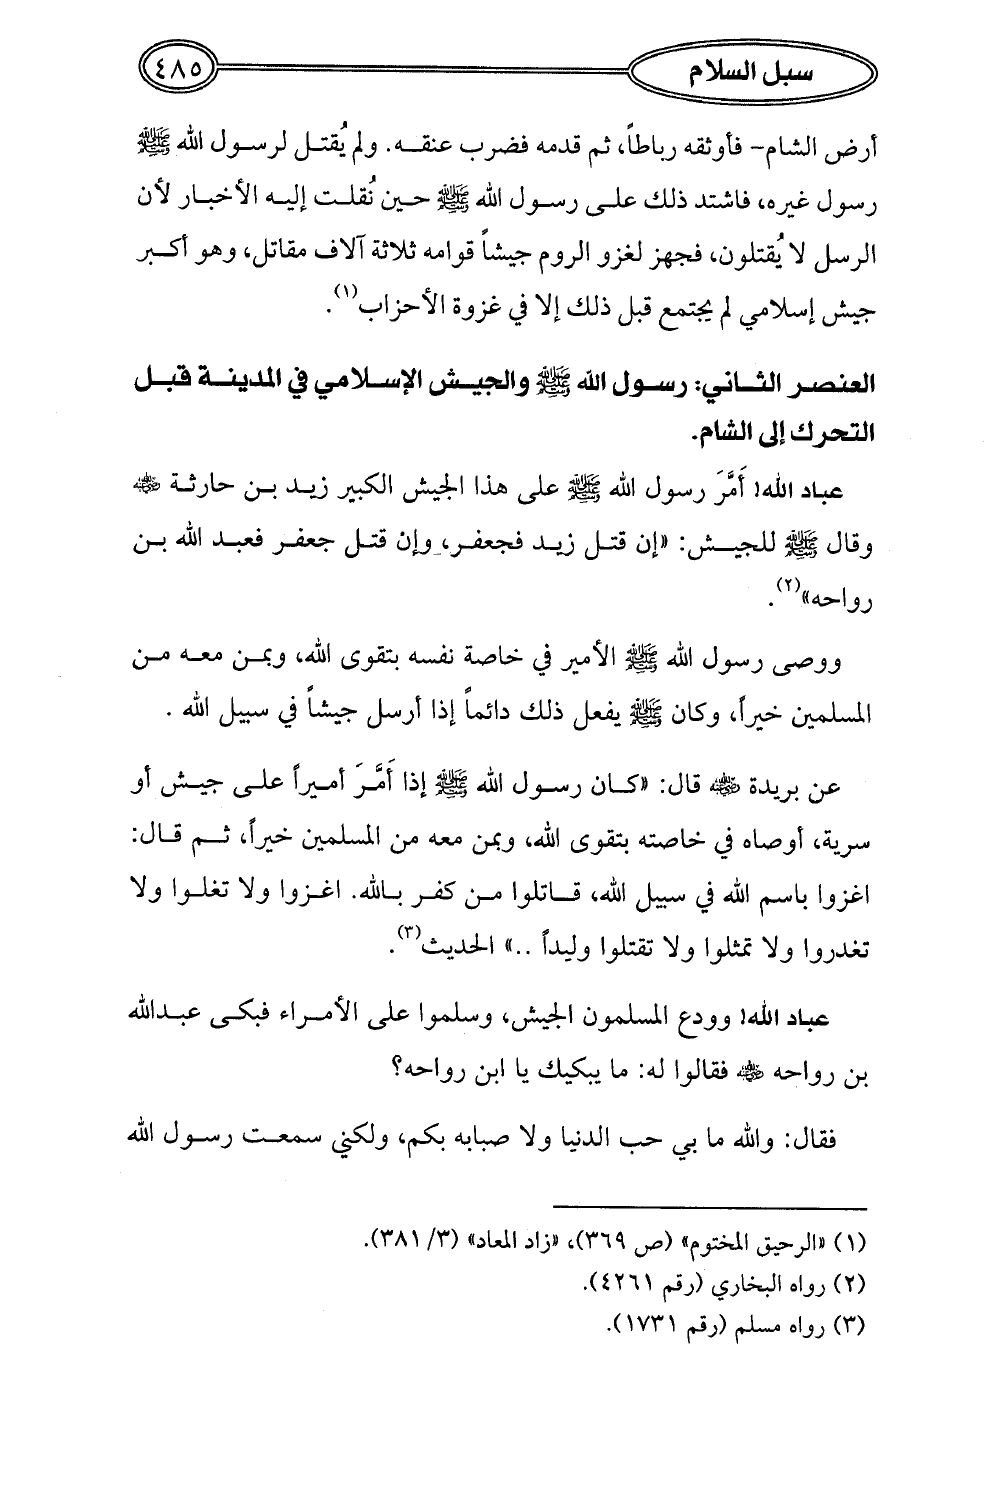 سبل السلام ٤٨٥
أرض الشام- فأوثقه رباطاً، ثم قدمه فضرب عنقـه. ولم يُقتـل لرسول الله ﷺ
رسول غيره، فاشتد ذلك علـى رسـول الله ﷺ حـين نُقلـت إليـه الأخبـار لأن
الرسل لا يُقتلون، فجهز لغزو الروم جيشاً قوامه ثلاثة آلاف مقاتل، وهو أكـبر
جيش إسلامي لم يجتمع قبل ذلك إلا في غزوة الأحزاب(١).
العنصر الثـاني: رسـول الله ﷺ والجيـش الإسـلامي في المدينـة قبـل
التحرك إلى الشام.
عباد الله! أَمَّرَ رسول الله ﷺ على هذا الجيش الكبير زيـد بـن حارثـة ﷺ
وقال ﷺ للجيـش: «إن قتـل زيـد فجعفـر، وإن قتـل جعفـر فعبـد الله بـن
رواحه»(٢).
ووصى رسول الله ﷺ الأمير في خاصة نفسه بتقوى الله، وبمـن معـه مـن
المسلمين خيراً، وكان ﷺ يفعل ذلك دائماً إذا أرسل جيشاً في سبيل الله .
عن بريدة ﷺ قال: «كـان رسـول الله ﷺ إذا أَمَّرَ أمـيراً علـى جيـش أو
سرية، أوصاه في خاصته بتقوى الله، وبمن معه من المسلمين خيراً، ثـم قـال:
اغزوا باسم الله في سبيل الله، قـاتلوا مـن كفر بـالله. اغـزوا ولا تغلـوا ولا
تغدروا ولا تمثلوا ولا تقتلوا وليداً ..» الحديث(٣).
عباد الله! وودع المسلمون الجيش، وسلموا على الأمـراء فبكـى عبـدالله
بن رواحه ﷺ فقالوا له: ما يبكيك يا ابن رواحه؟
فقال: والله ما بي حب الدنيا ولا صبابه بكم، ولكني سمعـت رسـول الله
(١) «الرحيق المختوم» (ص ٣٦٩)، «زاد المعاد» (٣/ ٣٨١).
(٢) رواه البخاري (رقم ٤٢٦١).
(٣) رواه مسلم (رقم ١٧٣١).